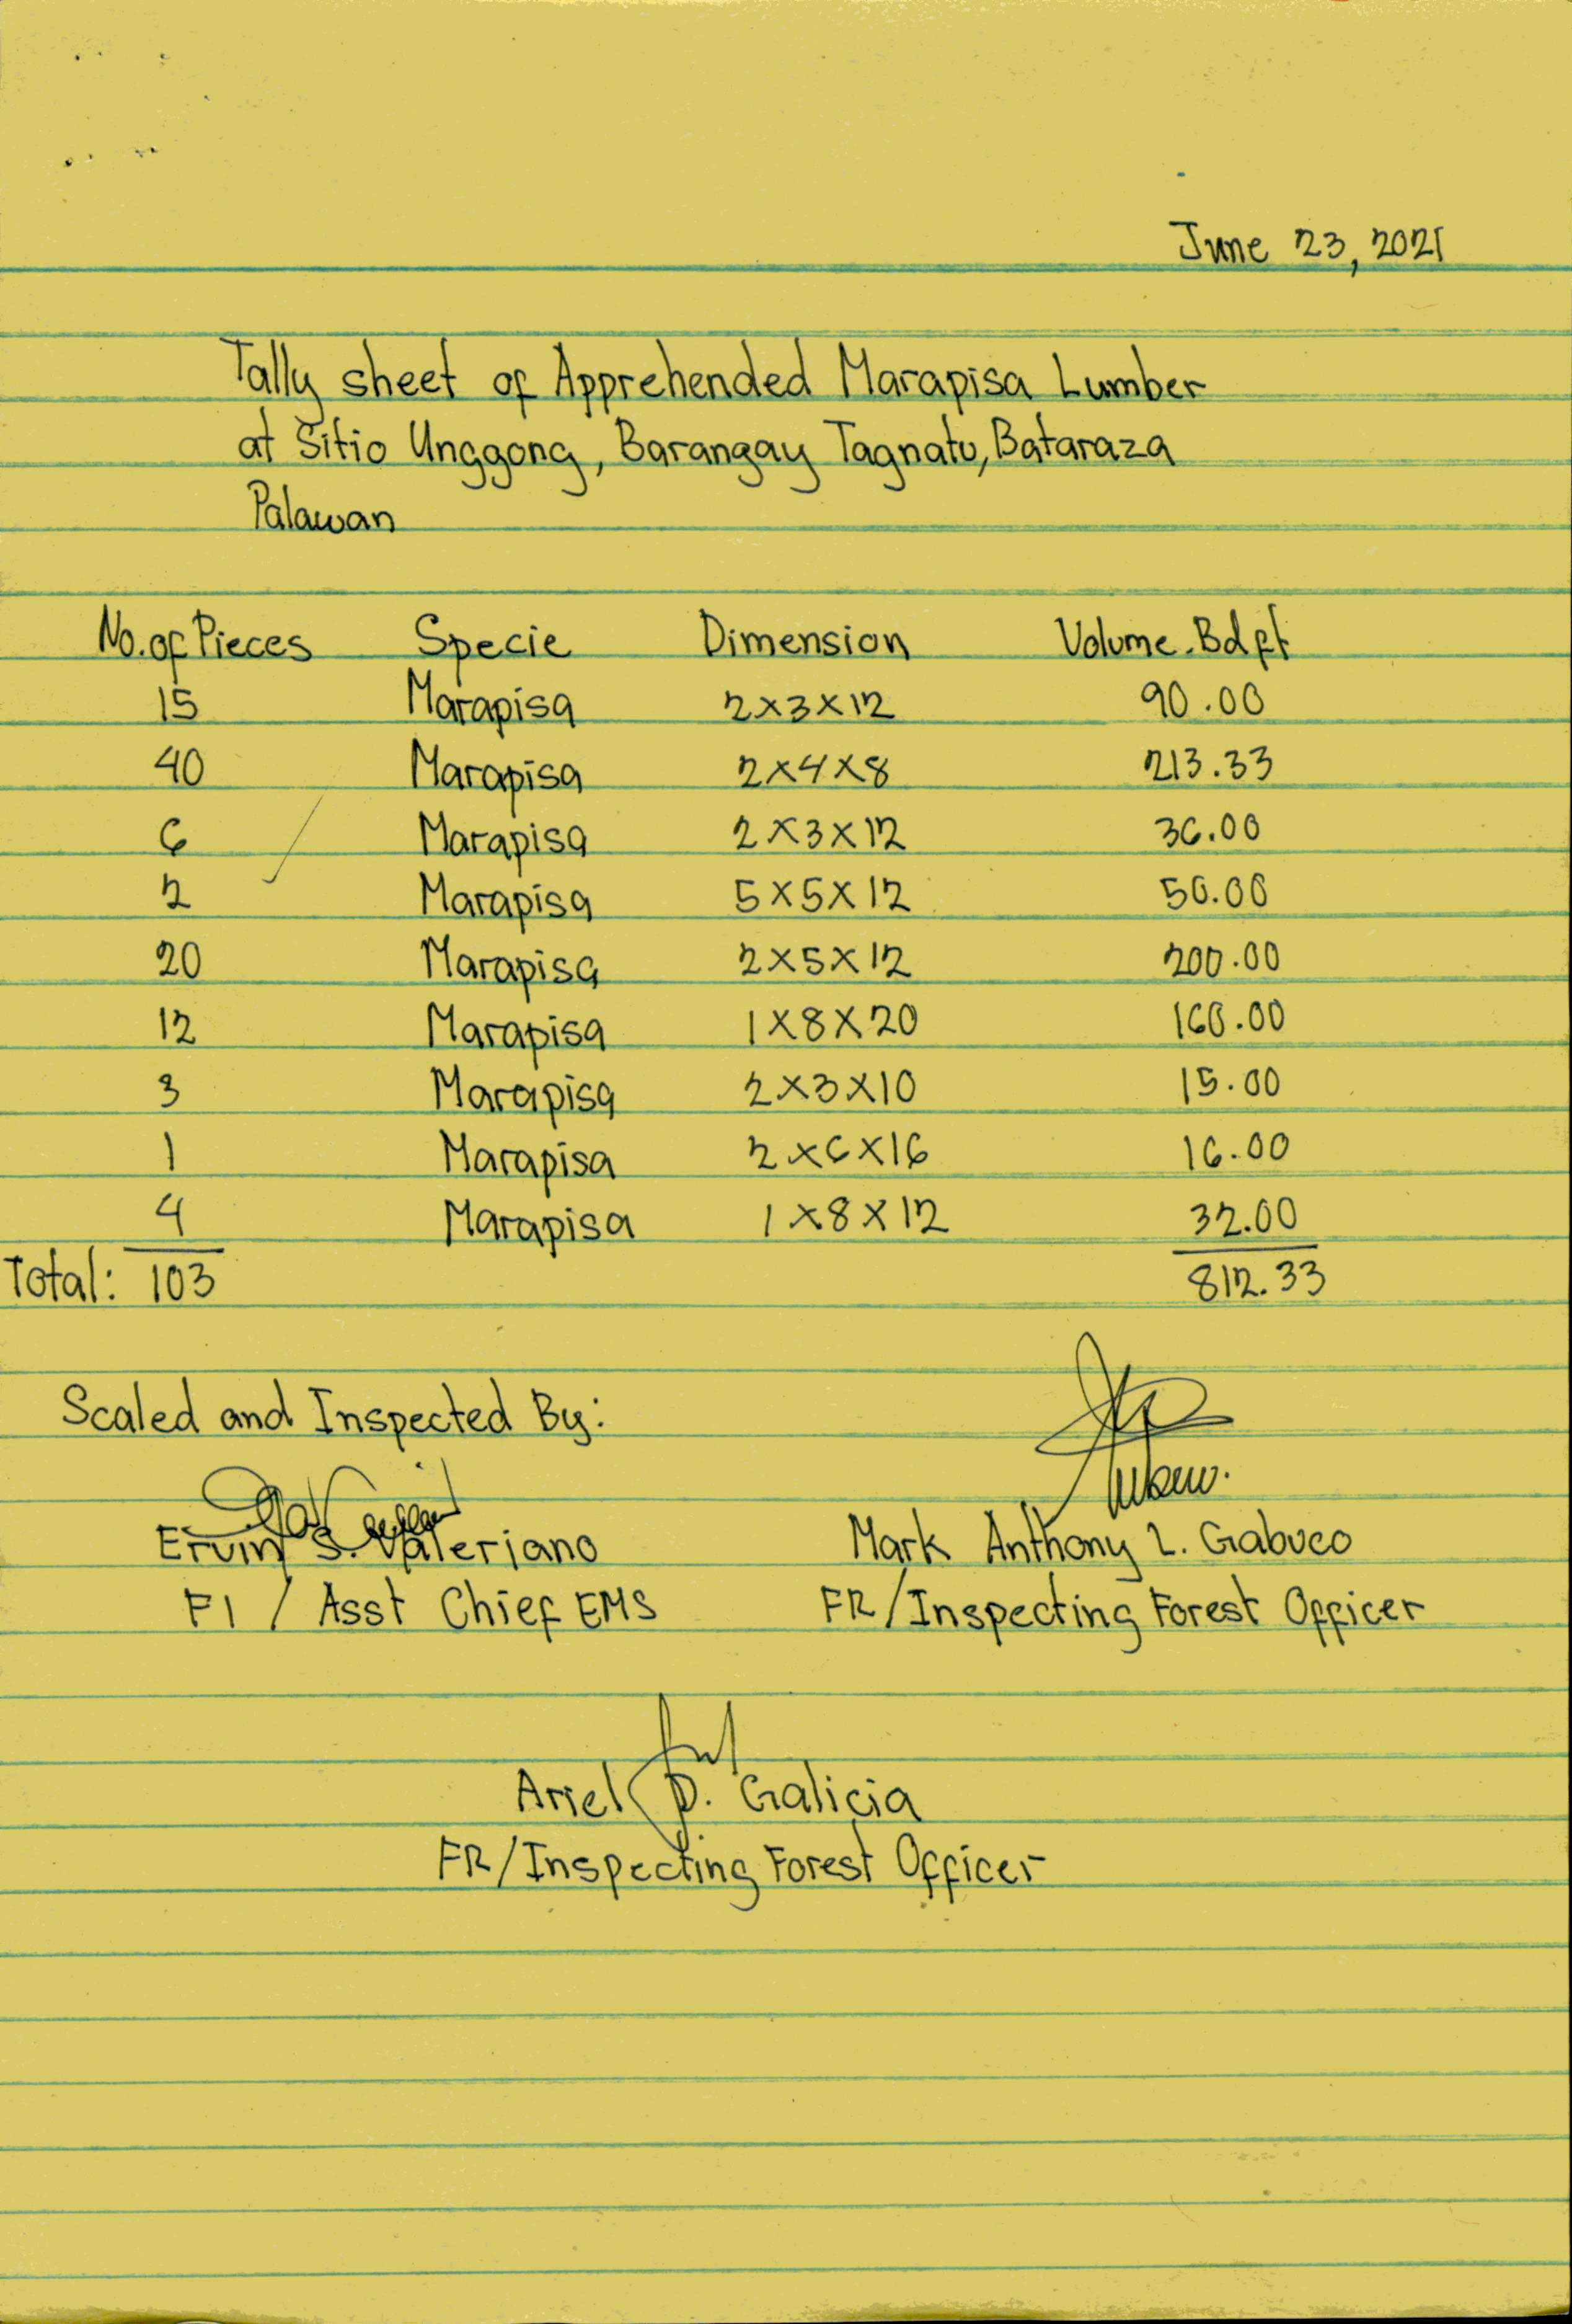 June 23, 2021
Tally sheet of Apprehended Marapisa Lumber
at Sitio Unggong, Barangay Tagnato, Bataraza
Palawan
No. of Pieces Specie Dimension Volume. Bdft
15 Marapisa 2x3x12 90.00
40 Marapisa 2x4x8 213.33
6 Marapisa 2x3x12 36.00
2 Marapisa 5x5x12 50.00
20 Marapisa 2x5x12 200.00
12 Marapisa 1x8x20 160.00
3 Marapisa 2x3x10 15.00
1 Marapisa 2x6x16 16.00
4 Marapisa 1x8x12 32.00
Total: 103 812.33
Scaled and Inspected By:
Ervin S. Valeriano Mark Anthony L. Gabuco
FI / Asst Chief EMS FR/Inspecting Forest Officer
Ariel D. Galicia
FR/Inspecting Forest Officer